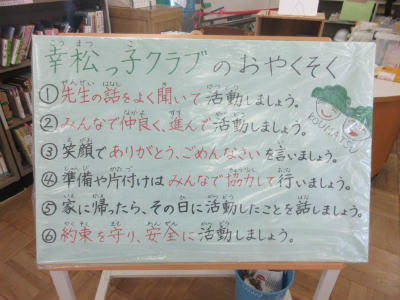 幸松っ子クラブのおやくそく
①先生の話をよく聞いて活動しましょう。
②みんなで仲良く、進んで活動しましょう。
③笑顔でありがとう、ごめんなさいを言いましょう。
④準備や片付けはみんなで協力して行いましょう。
⑤家に帰ったら、その日に活動したことを話しましょう。
⑥約束を守り、安全に活動しましょう。
KOUMATSU